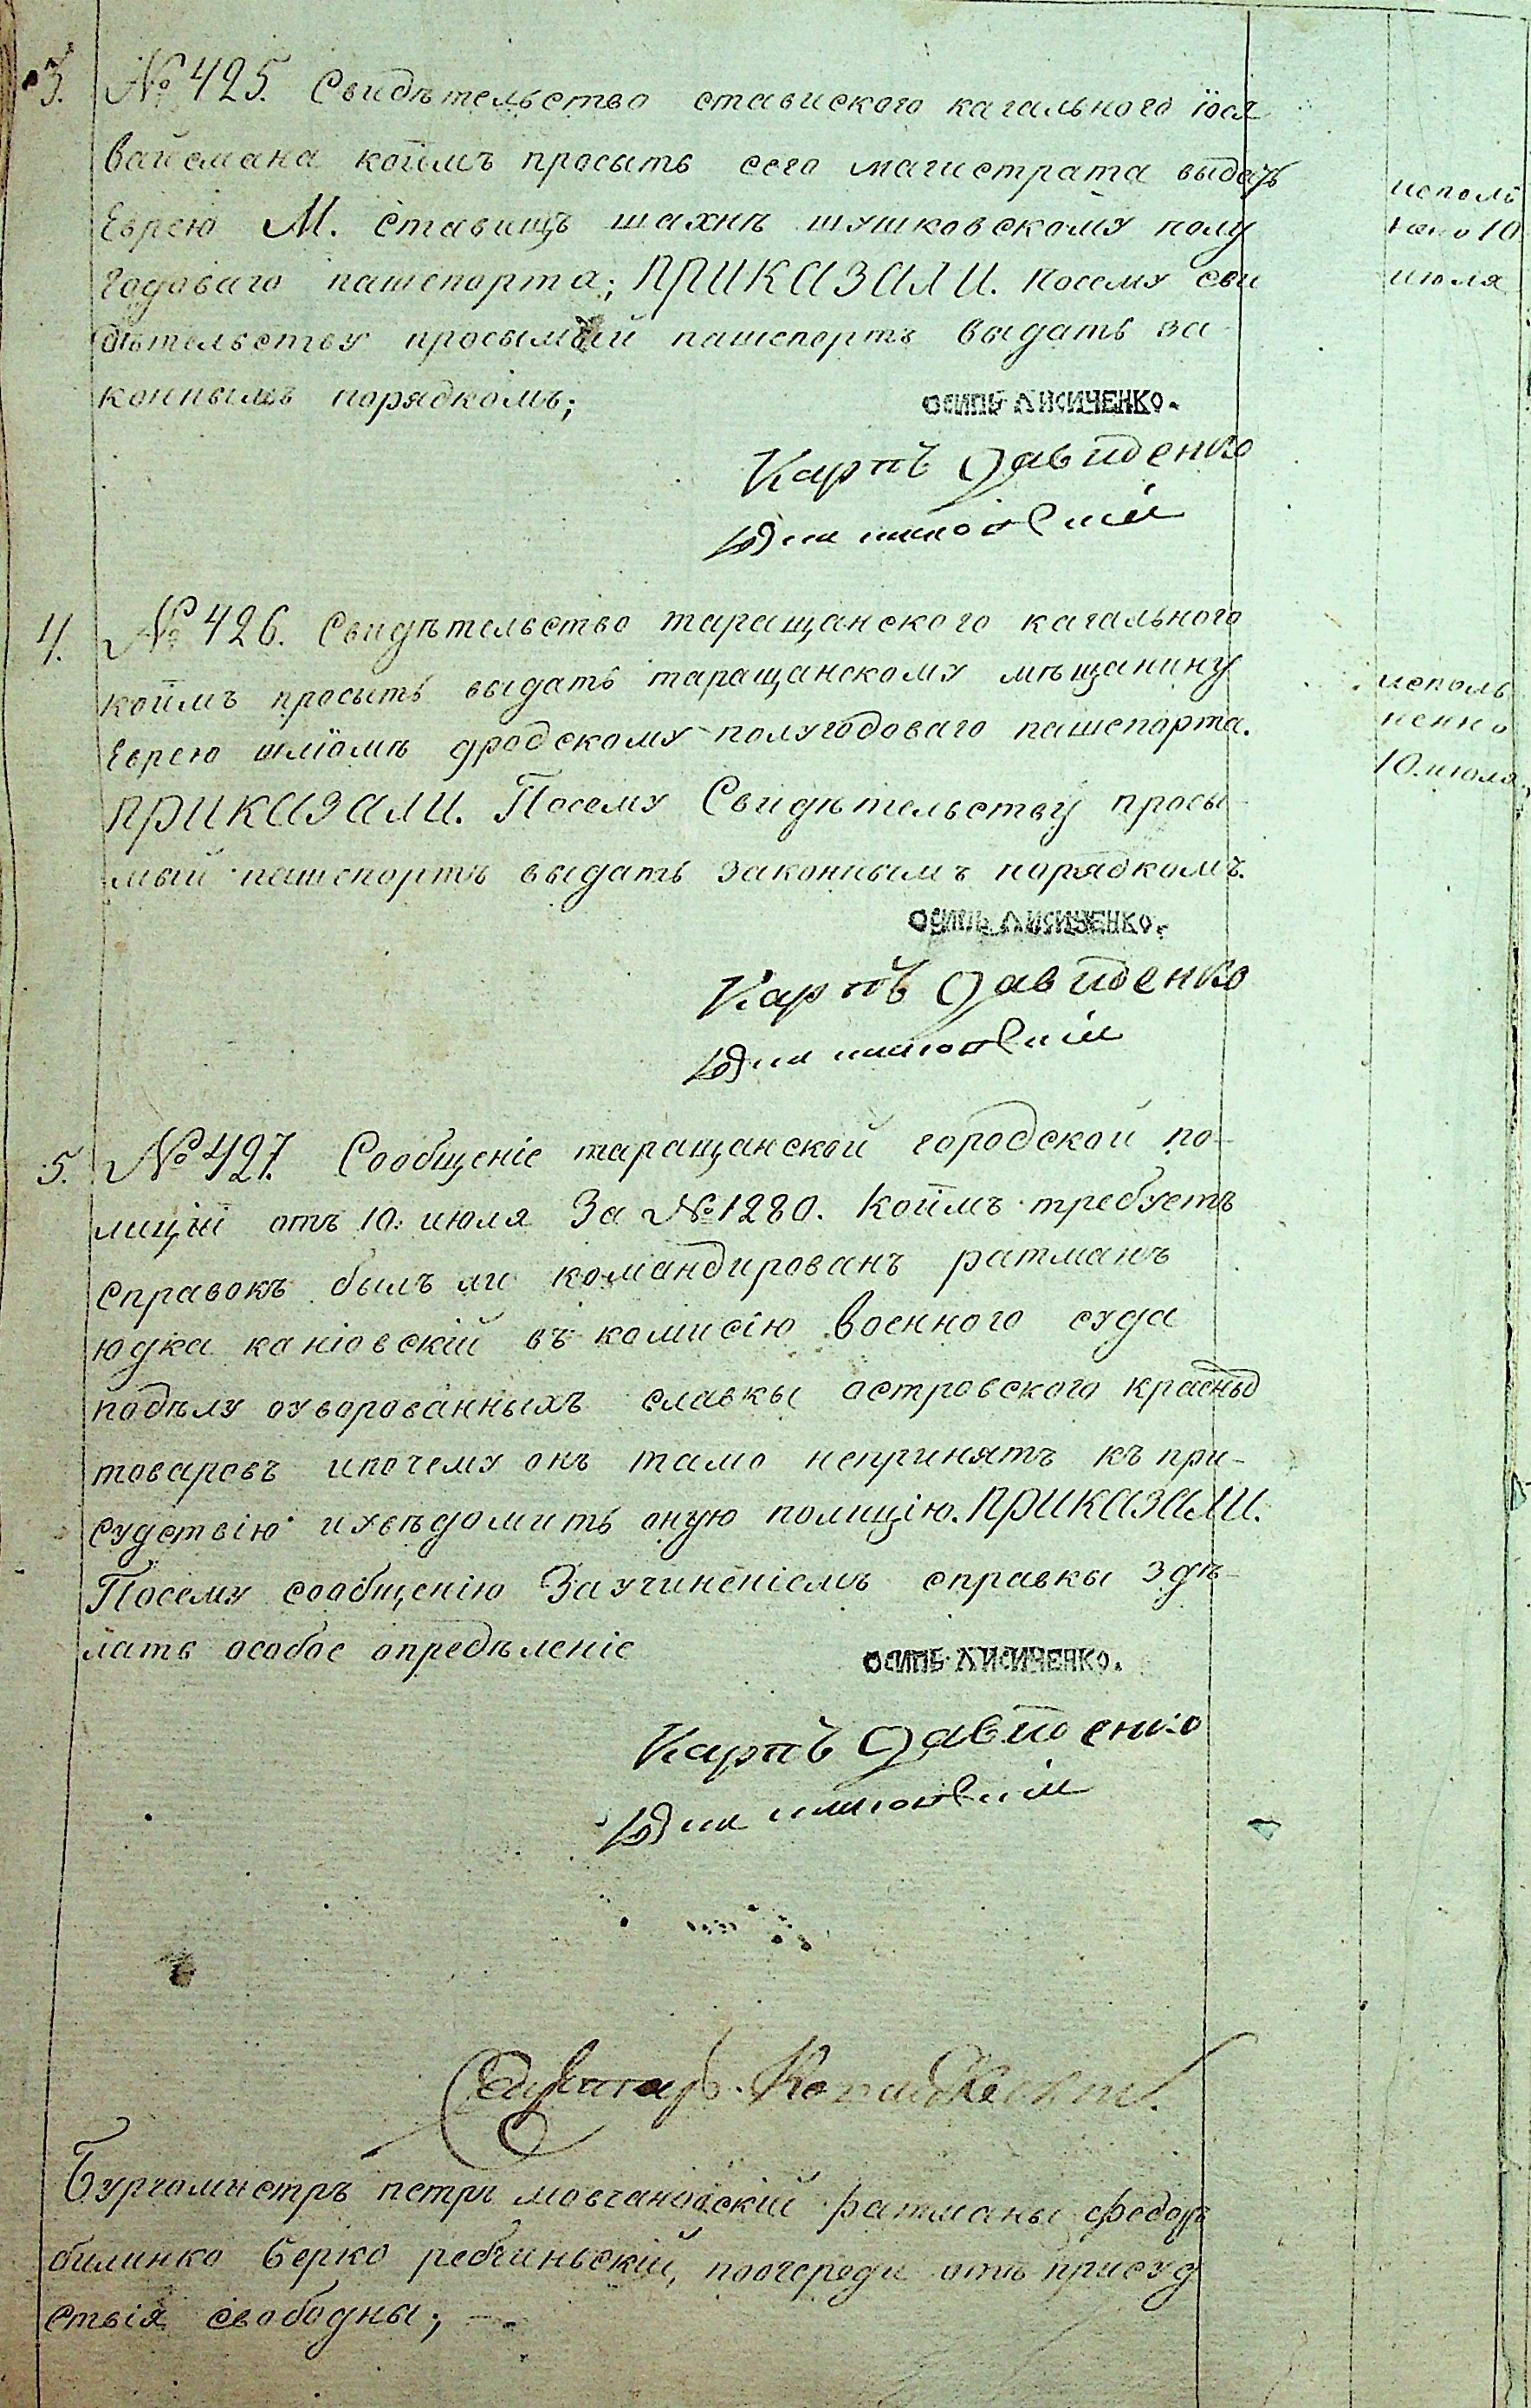 3. № 425. Свидѣтельство ставиского кагального їося
вайсмана коимъ просыть сего магистрата выдать
Еврею М. Ставищъ шахнѣ шушковскому полу
годоваго пашспорта; ПРИКАЗАЛИ. Посему сви
дѣтельству просымый пашспортъ выдать за
коннымъ порядкомъ;
исполь
нено 10
июля
ОСИПЬ ЛИСИЧЕНКО.
Карпъ Давиденко
4. № 426. Свидѣтельство таращанского кагального
коимъ просыть выдать таращанскому мѣщанину
Еврею шліомѣ дродскому полугодоваго пашспорта.
ПРИКАЗАЛИ. Посему Свидѣтельству просы-
мый пашспортъ выдать законнымъ порядкомъ.
исполь
ненно
10. июля
ОСИПЬ ЛИСИЧЕНКО.
Карпъ Давиденко
5. № 427. Сообщеніе таращанской городской по-
лиціи отъ 10. июля За № 1280. Коимъ требуеть
справокъ былъ ли командированъ ратманъ
юдка каніовскій въ комисію военного суда
подѣлу оуворованныхъ славкы островского красныхъ
товаровъ ипочему онъ тамо непринятъ къ при-
судствію иувѣдомить оную полицію. ПРИКАЗАЛИ.
Посему сообщенію Заучиненіемъ справкы здѣ-
лать особое опредѣленіе
ОСИПЬ ЛИСИЧЕНКО.
Карпъ Давиденко
Секретарь
Бургомистръ петръ мовчановскій ратманы федоръ
билинко Берко ребчиньскій, поочереди отъ присуд
ствія свободны;